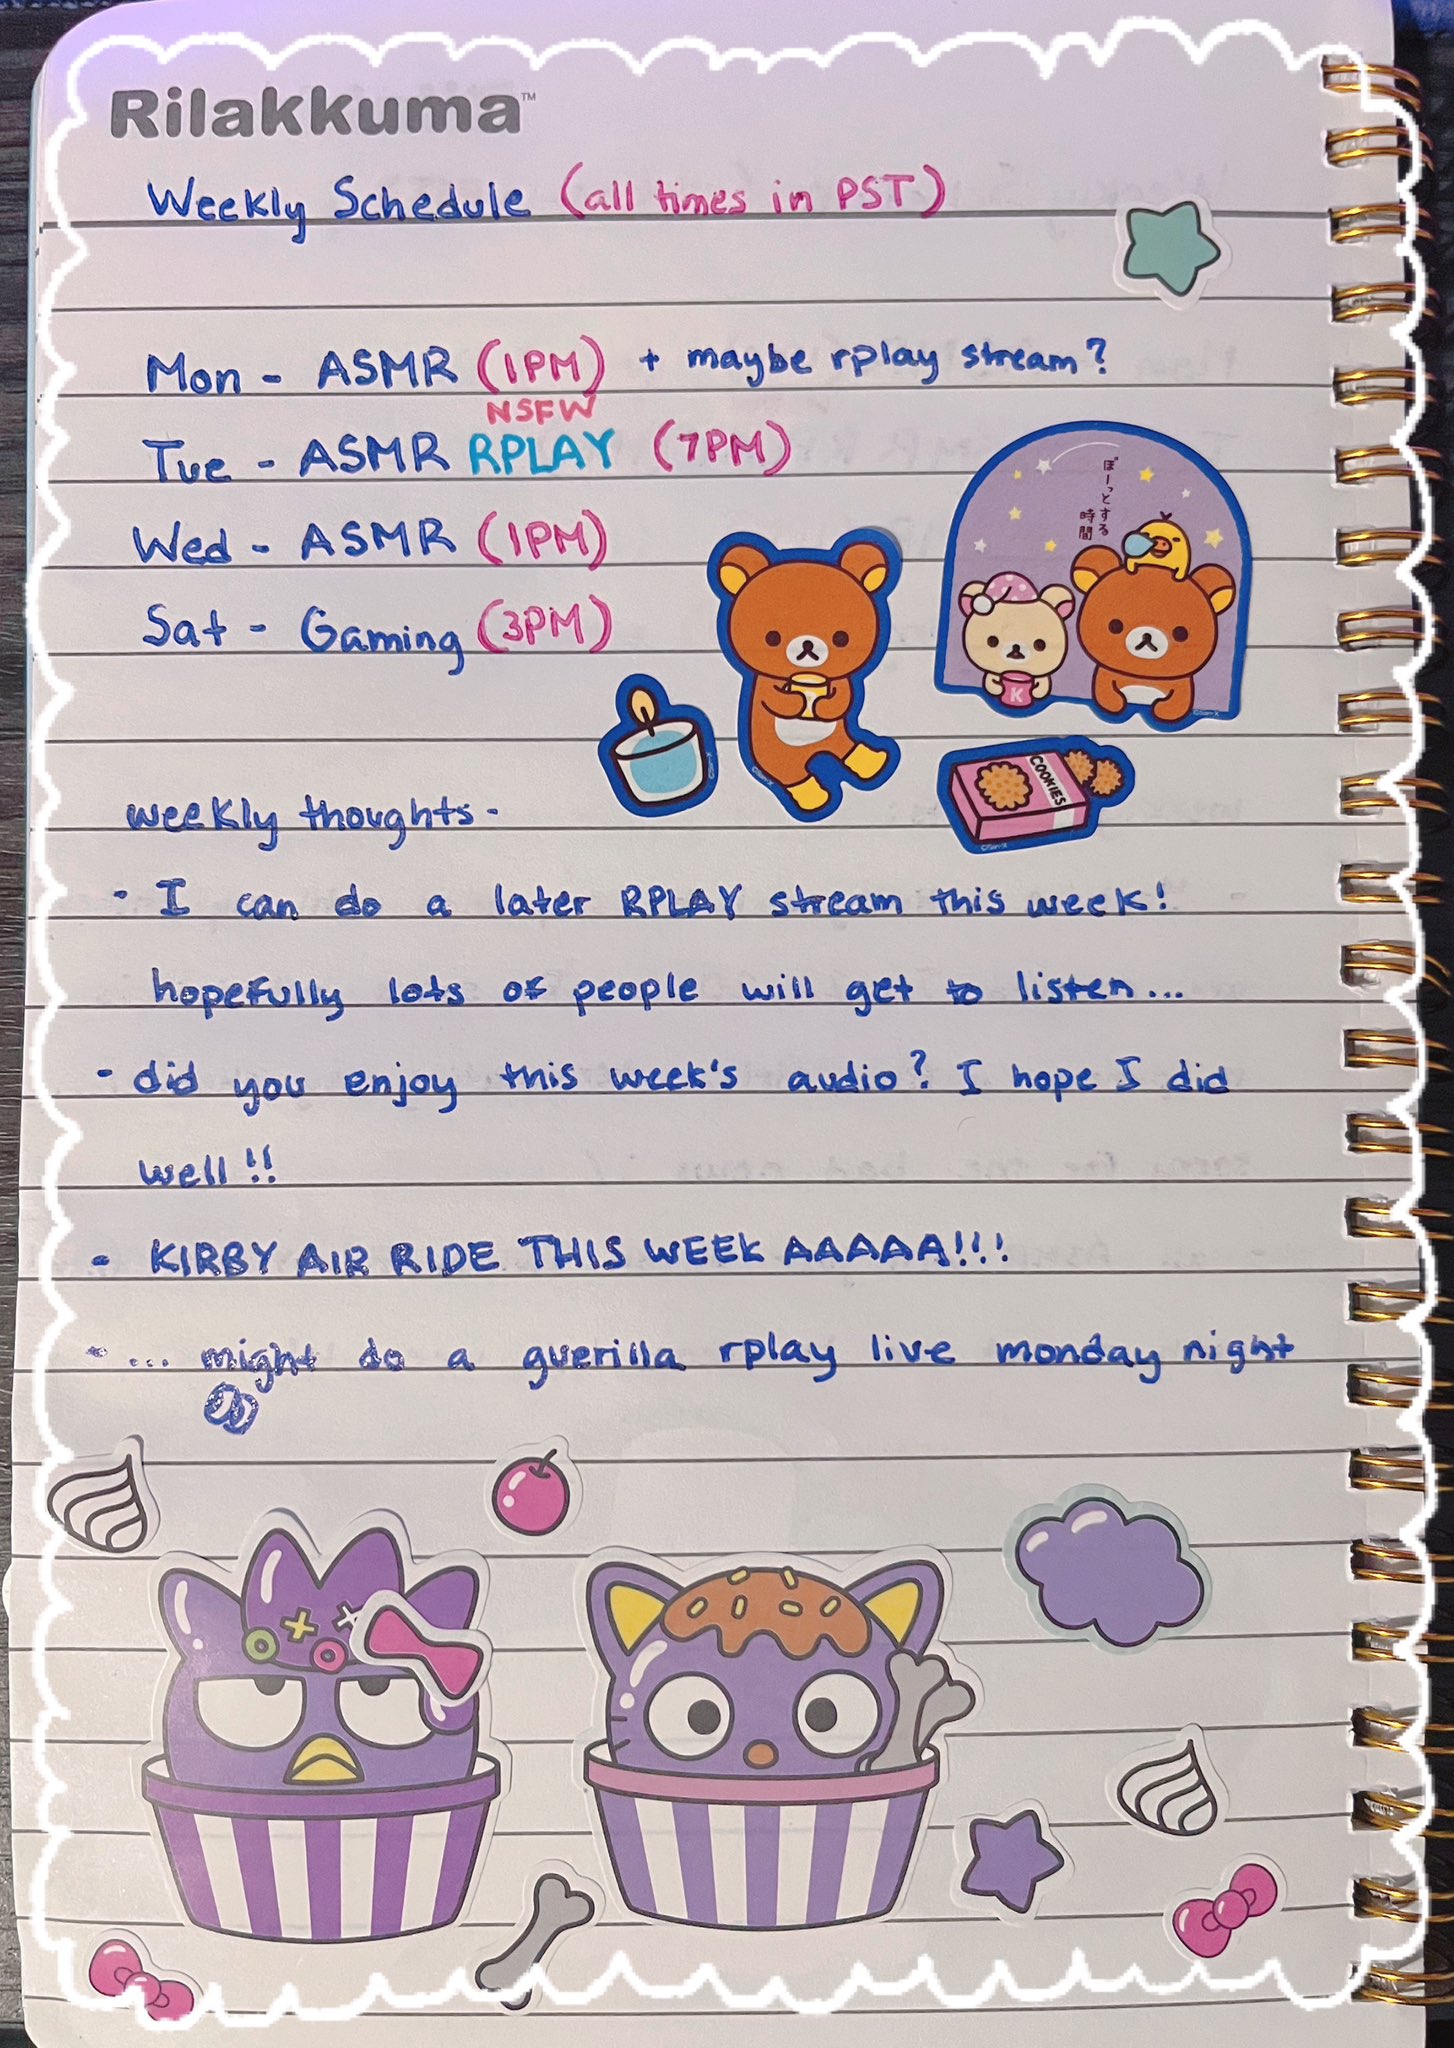 Rilakkuma™
Weekly Schedule (all times in PST)
Mon - ASMR (1PM) + maybe rplay stream?
NSFW
Tue - ASMR RPLAY (7PM)
Wed - ASMR (1PM)
Sat - Gaming (3PM)
ぼーっとする
時間
K
COOKIES
weekly thoughts -
- I can do a later RPLAY stream this week!
hopefully lots of people will get to listen...
- did you enjoy this week's audio? I hope I did
well!!
- KIRBY AIR RIDE THIS WEEK AAAAA!!!
- ... might do a guerilla rplay live monday night